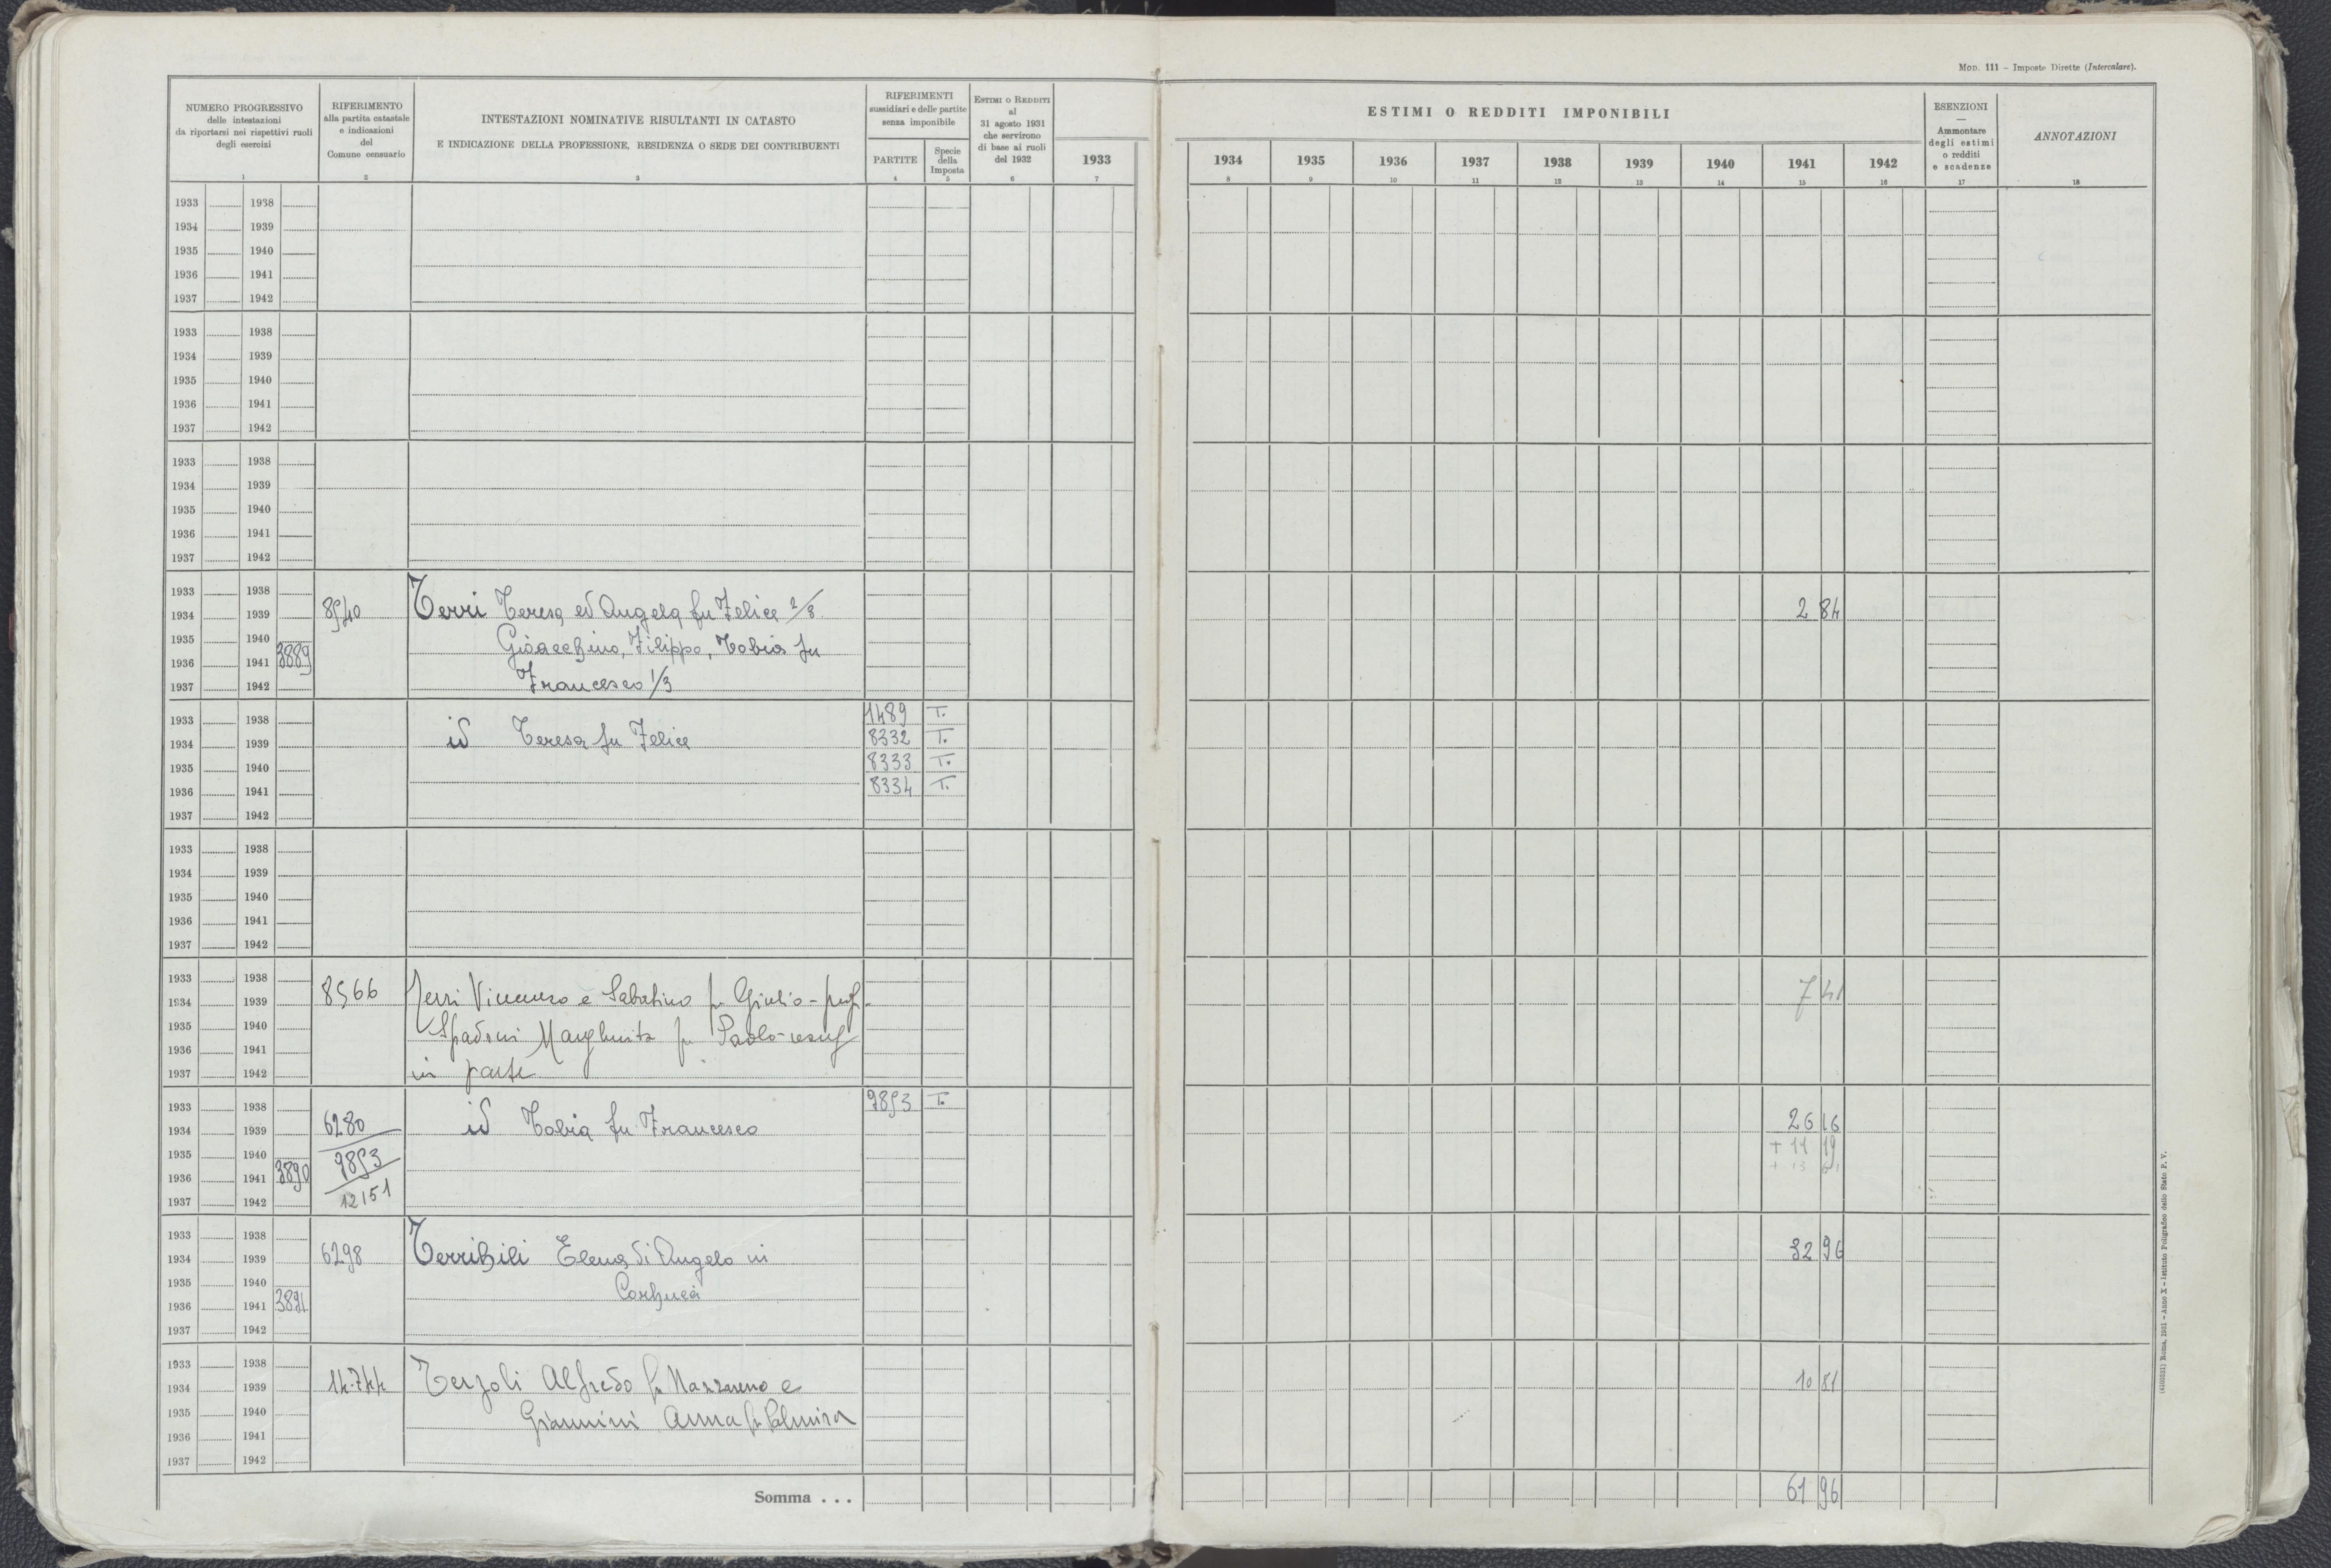 MOD. 111 – Imposte Dirette (Intercalare).
NUMERO PROGRESSIVO
delle intestazioni
da riportarsi nei rispettivi ruoli
degli esercizi
1
RIFERIMENTO
alla partita catastale
e indicazioni
del
Comune censuario
2
INTESTAZIONI NOMINATIVE RISULTANTI IN CATASTO
E INDICAZIONE DELLA PROFESSIONE, RESIDENZA O SEDE DEI CONTRIBUENTI
3
RIFERIMENTI
sussidiari e delle partite
senza imponibile
PARTITE
4
Specie
della
Imposta
5
ESTIMI O REDDITI
al
31 agosto 1931
che servirono
di base ai ruoli
del 1932
6
1933
7
ESTIMI O REDDITI IMPONIBILI
1934 1935 1936 1937 1938 1939 1940 1941 1942
8 9 10 11 12 13 14 15 16
ESENZIONI
—
Ammontare
degli estimi
o redditi
e scadenze
17
ANNOTAZIONI
18
1933 1938
1934 1939
1935 1940
1936 1941
1937 1942
1933 1938
1934 1939
1935 1940
1936 1941
1937 1942
1933 1938
1934 1939
1935 1940
1936 1941
1937 1942
1933 1938
1934 1939 8540 Terri Teresa ed Angela fu Felice 2/3 2 84
1935 1940 Gioacchino, Filippo, Tobia fu
1936 1941 3889
1937 1942 Francesco 1/3
1933 1938 1489 T.
1934 1939 id Teresa fu Felice 8332 T.
1935 1940 8333 T.
1936 1941 8334 T.
1937 1942
1933 1938
1934 1939
1935 1940
1936 1941
1937 1942
1933 1938
1934 1939 8566 Terri Vincenzo e Sabatino fu Giulio - 7 41
1935 1940 Spadoni Margherita fu Paolo
1936 1941
1937 1942 in parte
1933 1938 9853 T.
1934 1939 6280 id Tobia fu Francesco 26 16
1935 1940 9853 + 11 19
1936 1941 3890
1937 1942 12151
1933 1938
1934 1939 6298 Terribili Elena di Angelo in 32 96
1935 1940 Corbucci
1936 1941 3891
1937 1942
1933 1938
1934 1939 14744 Terzoli Alfredo fu Nazzareno e 10 81
1935 1940 Giannini Anna fu Palmira
1936 1941
1937 1942
Somma . . . 61 96
(4100231) Roma, 1931 – Anno X – Istituto Poligrafico dello Stato P. V.